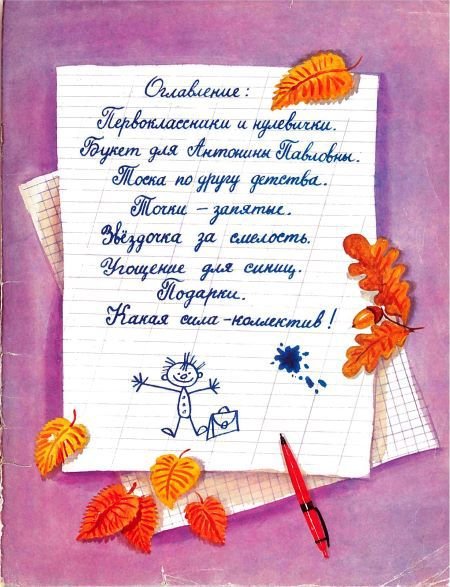 Оглавление:
Первоклассники и нулевички.
Букет для Антонины Павловны.
Тоска по другу детства.
Точки – запятые.
Звёздочка за смелость.
Угощение для синиц.
Подарки.
Какая сила – коллектив!